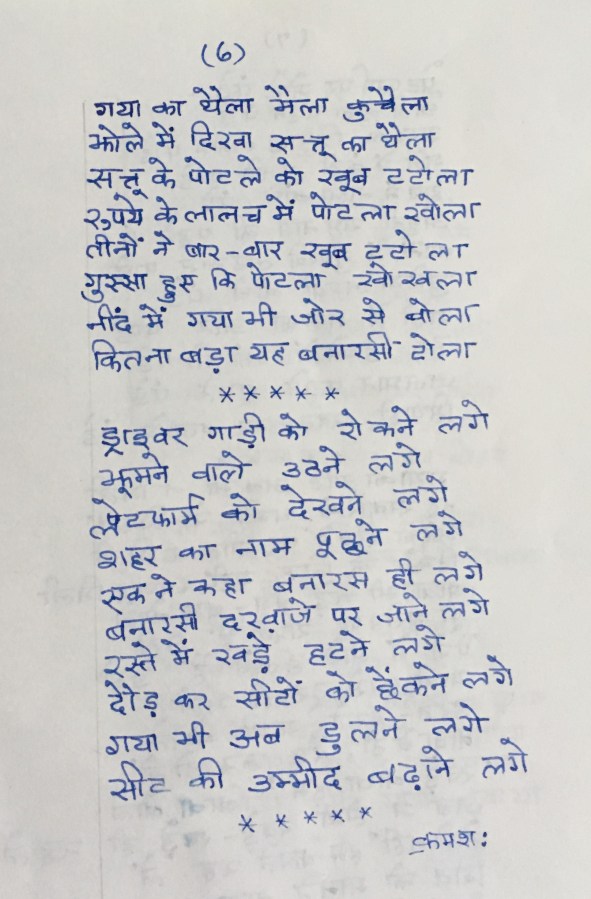 (6)
गया का थैला मैला कुचैला
झोले में दिखा सत्तू का थैला
सत्तू के पोटले को खूब टटोला
रुपये के लालच में पोटला खोला
तीनों ने बार-बार खूब टटोला
गुस्सा हुए कि पोटला खोखला
नींद में गया भी जोर से बोला
कितना बड़ा यह बनारसी टोला
*****
ड्राइवर गाड़ी को रोकने लगे
झूमने वाले उठने लगे
प्लेटफार्म को देखने लगे
शहर का नाम पूछने लगे
एक ने कहा बनारस ही लगे
बनारसी दरवाजे पर जाने लगे
रस्ते में खड़े हटने लगे
दौड़ कर सीटों को छेंकने लगे
गया भी अब डुलने लगे
सीट की उम्मीद बढ़ाने लगे
*****
क्रमश: